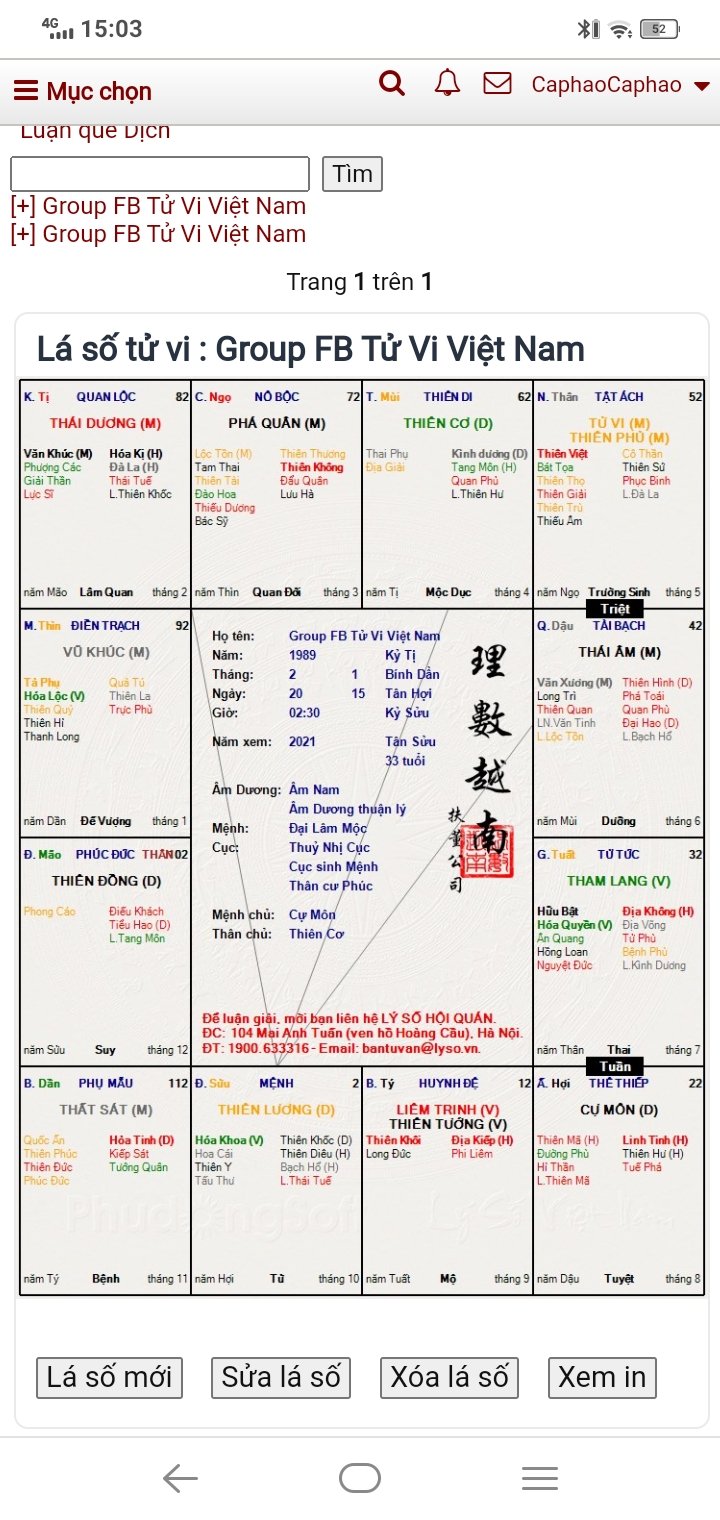 4G 15:03 52
Mục chọn CaphaoCaphao
Luận quẻ Dịch
Tìm
[+] Group FB Tử Vi Việt Nam
[+] Group FB Tử Vi Việt Nam
Trang 1 trên 1
Lá số tử vi : Group FB Tử Vi Việt Nam
K. Tị QUAN LỘC 82
THÁI DƯƠNG (M)
Văn Khúc (M) Hóa Kị (H)
Phượng Các Đà La (H)
Giải Thần Thái Tuế
Lực Sĩ L.Thiên Khốc
năm Mão Lâm Quan tháng 2
C. Ngọ NÔ BỘC 72
PHÁ QUÂN (M)
Lộc Tồn (M) Thiên Thương
Tam Thai Thiên Không
Thiên Tài Đẩu Quân
Đào Hoa Lưu Hà
Thiếu Dương
Bác Sỹ
năm Thìn Quan Đới tháng 3
T. Mùi THIÊN DI 62
THIÊN CƠ (D)
Thai Phụ Kình dương (D)
Địa Giải Tang Môn (H)
Quan Phủ
L.Thiên Hư
năm Tị Mộc Dục tháng 4
N. Thân TẬT ÁCH 52
TỬ VI (M)
THIÊN PHỦ (M)
Thiên Việt Cô Thần
Bát Tọa Thiên Sứ
Thiên Thọ Phục Binh
Thiên Giải L.Đà La
Thiên Trù
Thiếu Âm
năm Ngọ Trường Sinh tháng 5
Triệt
M. Thìn ĐIỀN TRẠCH 92
VŨ KHÚC (M)
Tả Phụ Quả Tú
Hóa Lộc (V) Thiên La
Thiên Quý Trực Phù
Thiên Hỉ
Thanh Long
năm Dần Đế Vượng tháng 1
Họ tên: Group FB Tử Vi Việt Nam
Năm: 1989 Kỷ Tị
Tháng: 2 1 Bính Dần
Ngày: 20 15 Tân Hợi
Giờ: 02:30 Kỷ Sửu
Năm xem: 2021 Tân Sửu
33 tuổi
Âm Dương: Âm Nam
Âm Dương thuận lý
Mệnh: Đại Lâm Mộc
Cục: Thuỷ Nhị Cục
Cục sinh Mệnh
Thân cư Phúc
Mệnh chủ: Cự Môn
Thân chủ: Thiên Cơ
理數越南
扶董公司
Để luận giải, mời bạn liên hệ LÝ SỐ HỘI QUÁN.
ĐC: 104 Mai Anh Tuấn (ven hồ Hoàng Cầu), Hà Nội.
ĐT: 1900.633316 - Email: bantuvan@lyso.vn.
Q. Dậu TÀI BẠCH 42
THÁI ÂM (M)
Văn Xương (M) Thiên Hình (D)
Long Trì Phá Toái
Thiên Quan Quan Phù
LN.Văn Tinh Đại Hao (D)
L.Lộc Tồn L.Bạch Hổ
năm Mùi Dưỡng tháng 6
Đ. Mão PHÚC ĐỨC THÂN 102
THIÊN ĐỒNG (D)
Phong Cáo Điếu Khách
Tiểu Hao (D)
L.Tang Môn
năm Sửu Suy tháng 12
G. Tuất TỬ TỨC 32
THAM LANG (V)
Hữu Bật Địa Không (H)
Hóa Quyền (V) Địa Võng
Ân Quang Tử Phù
Hồng Loan Bệnh Phù
Nguyệt Đức L.Kình Dương
năm Thân Thai tháng 7
Tuần
B. Dần PHỤ MẪU 112
THẤT SÁT (M)
Quốc Ấn Hỏa Tinh (D)
Thiên Phúc Kiếp Sát
Thiên Đức Tướng Quân
Phúc Đức
năm Tý Bệnh tháng 11
Đ. Sửu MỆNH 2
THIÊN LƯƠNG (D)
Hóa Khoa (V) Thiên Khốc (D)
Hoa Cái Thiên Diêu (H)
Thiên Y Bạch Hổ (H)
Tấu Thư L.Thái Tuế
năm Hợi Tử tháng 10
B. Tý HUYNH ĐỆ 12
LIÊM TRINH (V)
THIÊN TƯỚNG (V)
Thiên Khôi Địa Kiếp (H)
Long Đức Phi Liêm
năm Tuất Mộ tháng 9
Ấ. Hợi THÊ THIẾP 22
CỰ MÔN (D)
Thiên Mã (H) Linh Tinh (H)
Đường Phù Thiên Hư (H)
Hỉ Thần Tuế Phá
L.Thiên Mã
năm Dậu Tuyệt tháng 8
Lá số mới Sửa lá số Xóa lá số Xem in